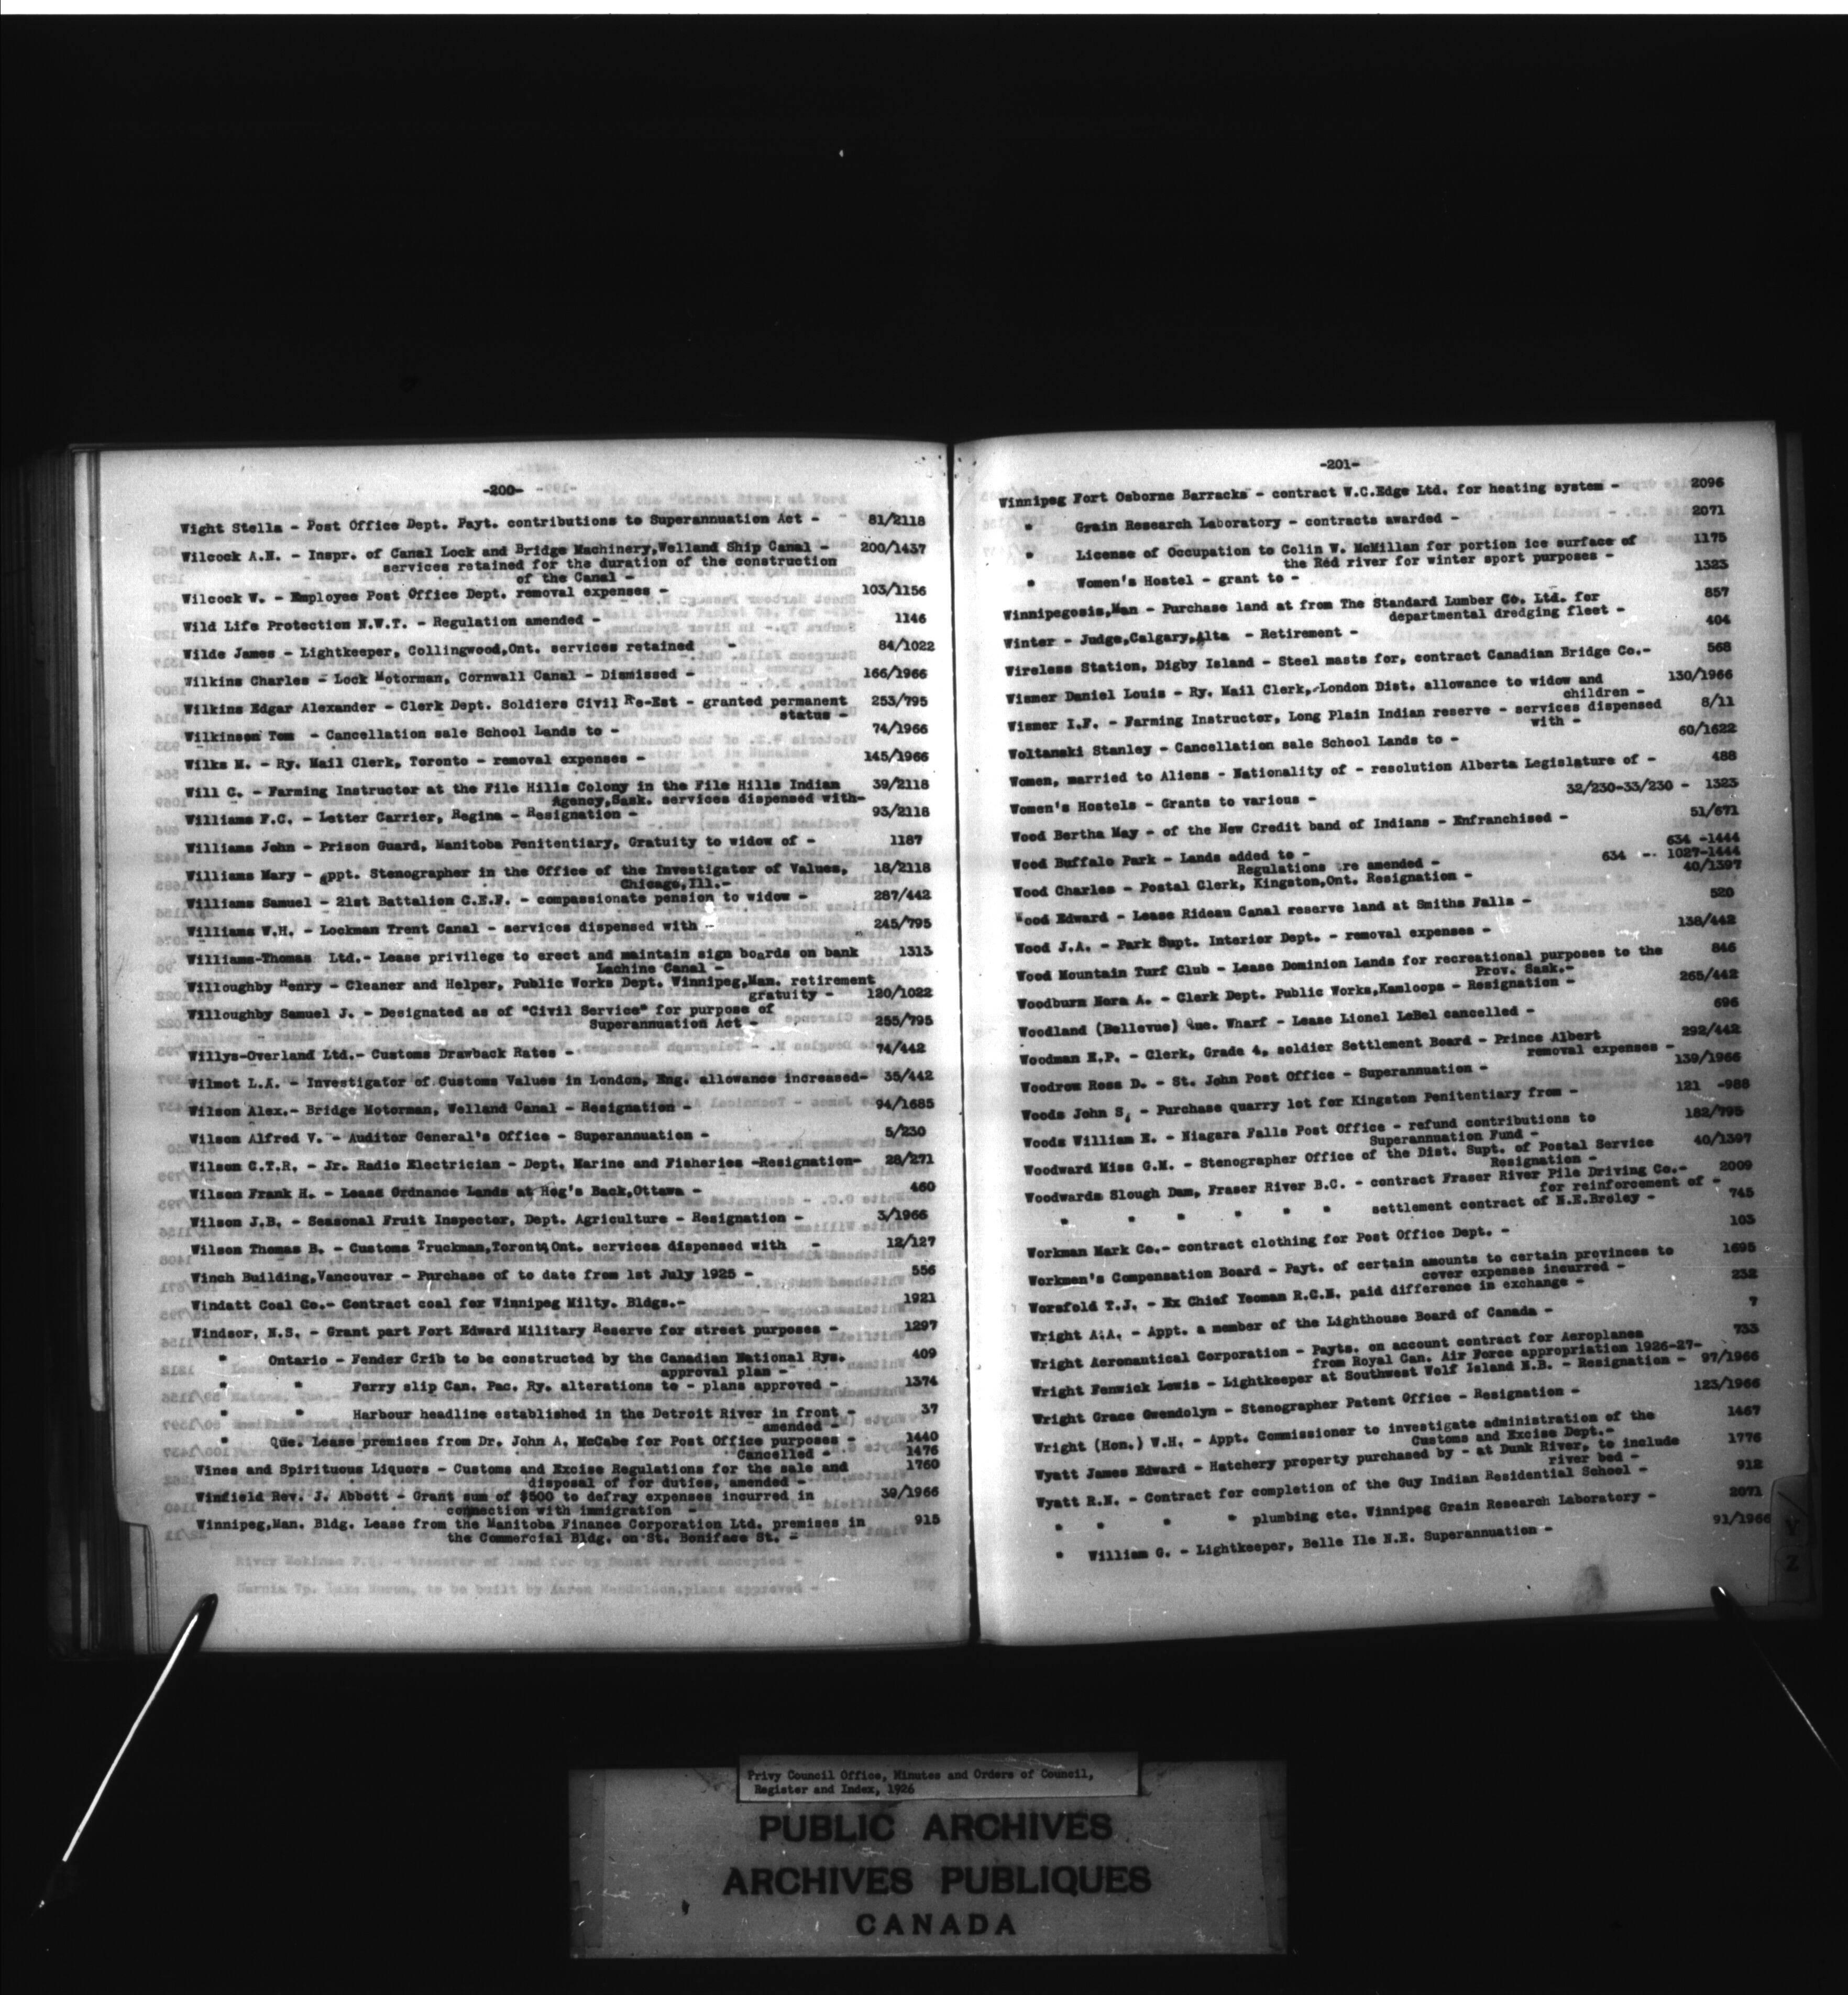 -200-
Wight Stella - Post Office Dept. Payt. contributions to Superannuation Act - 81/2118
Wilcock A.N. - Inspr. of Canal Lock and Bridge Machinery,Welland Ship Canal - 200/1437
services retained for the duration of the construction
of the Canal -
Wilcock W. - Employee Post Office Dept. removal expenses - 103/1156
Wild Life Protection N.W.T. - Regulation amended - 1146
Wilde James - Lightkeeper, Collingwood,Ont. services retained - 84/1022
Wilkins Charles - Lock Motorman, Cornwall Canal - Dismissed - 166/1966
Wilkins Edgar Alexander - Clerk Dept. Soldiers Civil Re-Est - granted permanent 253/795
status -
Wilkinson Tom - Cancellation sale School Lands to - 74/1966
Wilks M. - Ry. Mail Clerk, Toronto - removal expenses - 145/1966
Will C. - Farming Instructor at the File Hills Colony in the File Hills Indian 39/2118
Agency,Sask. services dispensed with-
Williams F.C. - Letter Carrier, Regina - Resignation - 93/2118
Williams John - Prison Guard, Manitoba Penitentiary, Gratuity to widow of - 1187
Williams Mary - Appt. Stenographer in the Office of the Investigator of Values, 18/2118
Chicago,Ill.-
Williams Samuel - 21st Battalion C.E.F. - compassionate pension to widow - 287/442
Williams W.H. - Lockman Trent Canal - services dispensed with - 245/795
Williams-Thomas Ltd.- Lease privilege to erect and maintain sign boards on bank 1313
Lachine Canal -
Willoughby Henry - Cleaner and Helper, Public Works Dept. Winnipeg,Man. retirement
gratuity - 120/1022
Willoughby Samuel J. - Designated as of "Civil Service" for purpose of
Superannuation Act - 255/795
Willys-Overland Ltd.- Customs Drawback Rates - 74/442
Wilmot L.A. - Investigator of Customs Values in London, Eng. allowance increased- 35/442
Wilson Alex.- Bridge Motorman, Welland Canal - Resignation - 94/1685
Wilson Alfred V. - Auditor General's Office - Superannuation - 5/230
Wilson C.T.R. - Jr. Radio Electrician - Dept. Marine and Fisheries -Resignation- 28/271
Wilson Frank H. - Lease Ordnance Lands at Hog's Back,Ottawa - 460
Wilson J.B. - Seasonal Fruit Inspector, Dept. Agriculture - Resignation - 3/1966
Wilson Thomas B. - Customs Truckman,Toronto,Ont. services dispensed with - 12/127
Winch Building,Vancouver - Purchase of to date from 1st July 1925 - 556
Windatt Coal Co.- Contract coal for Winnipeg Milty. Bldgs.- 1921
Windsor, N.S. - Grant part Fort Edward Military Reserve for street purposes - 1297
" Ontario - Fender Crib to be constructed by the Canadian National Rys. 409
approval plan -
" " Ferry slip Can. Pac. Ry. alterations to - plans approved - 1374
" " Harbour headline established in the Detroit River in front - 37
amended -
" Que. Lease premises from Dr. John A. McCabe for Post Office purposes - 1440
Cancelled - 1476
Wines and Spirituous Liquors - Customs and Excise Regulations for the sale and 1760
disposal of for duties, amended -
Winfield Rev. J. Abbott - Grant sum of $500 to defray expenses incurred in 39/1966
connection with immigration -
Winnipeg,Man. Bldg. Lease from the Manitoba Finance Corporation Ltd. premises in 915
the Commercial Bldg. on St. Boniface St. -
-201-
Winnipeg Fort Osborne Barracks - contract W.C.Edge Ltd. for heating system - 2096
" Grain Research Laboratory - contracts awarded - 2071
" License of Occupation to Colin W. McMillan for portion ice surface of 1175
the Red river for winter sport purposes -
" Women's Hostel - grant to - 1323
Winnipegosis,Man - Purchase land at from The Standard Lumber Co. Ltd. for 857
departmental dredging fleet -
Winter - Judge,Calgary,Alta - Retirement - 404
Wireless Station, Digby Island - Steel masts for, contract Canadian Bridge Co.- 568
Wismer Daniel Louis - Ry. Mail Clerk, London Dist. allowance to widow and 130/1966
children -
Wismer I.F. - Farming Instructor, Long Plain Indian reserve - services dispensed 8/11
with -
Woltanski Stanley - Cancellation sale School Lands to - 60/1622
Women, married to Aliens - Nationality of - resolution Alberta Legislature of - 488
Women's Hostels - Grants to various - 32/230-33/230 - 1323
Wood Bertha May - of the New Credit band of Indians - Enfranchised - 51/671
Wood Buffalo Park - Lands added to - 634 -1444
Regulations re amended - 634 - 1027-1444
Wood Charles - Postal Clerk, Kingston,Ont. Resignation - 40/1397
Wood Edward - Lease Rideau Canal reserve land at Smiths Falls - 520
Wood J.A. - Park Supt. Interior Dept. - removal expenses - 138/442
Wood Mountain Turf Club - Lease Dominion Lands for recreational purposes to the 846
Prov. Sask.-
Woodburn Nora A. - Clerk Dept. Public Works,Kamloops - Resignation - 265/442
Woodland (Bellevue) Que. Wharf - Lease Lionel LeBel cancelled - 696
Woodman E.P. - Clerk, Grade 4, soldier Settlement Board - Prince Albert 292/442
removal expenses -
Woodrow Ross D. - St. John Post Office - Superannuation - 139/1966
Woods John S. - Purchase quarry lot for Kingston Penitentiary from - 121 -988
Woods William E. - Niagara Falls Post Office - refund contributions to 182/795
Superannuation Fund -
Woodward Miss G.M. - Stenographer Office of the Dist. Supt. of Postal Service 40/1397
Resignation -
Woodwards Slough Dam, Fraser River B.C. - contract Fraser River Pile Driving Co.- 2009
for reinforcement of -
" " " " " " settlement contract of N.E.Broley - 745
Workman Mark Co.- contract clothing for Post Office Dept. - 103
Workmen's Compensation Board - Payt. of certain amounts to certain provinces to 1695
cover expenses incurred -
Worsfold T.J. - Ex Chief Yeoman R.C.N. paid difference in exchange - 232
Wright A.A. - Appt. a member of the Lighthouse Board of Canada - 7
Wright Aeronautical Corporation - Payts. on account contract for Aeroplanes 733
from Royal Can. Air Force appropriation 1926-27-
Wright Fenwick Lewis - Lightkeeper at Southwest Wolf Island N.B. - Resignation - 97/1966
Wright Grace Gwendolyn - Stenographer Patent Office - Resignation - 123/1966
Wright (Hon.) W.H. - Appt. Commissioner to investigate administration of the 1467
Customs and Excise Dept.-
Wyatt James Edward - Hatchery property purchased by - at Dunk River, to include 1776
river bed -
Wyatt R.N. - Contract for completion of the Guy Indian Residential School - 912
" " " " plumbing etc. Winnipeg Grain Research Laboratory - 2071
" William G. - Lightkeeper, Belle Ile N.E. Superannuation - 91/1966
Y
Z
Privy Council Office, Minutes and Orders of Council,
Register and Index, 1926
PUBLIC ARCHIVES
ARCHIVES PUBLIQUES
CANADA